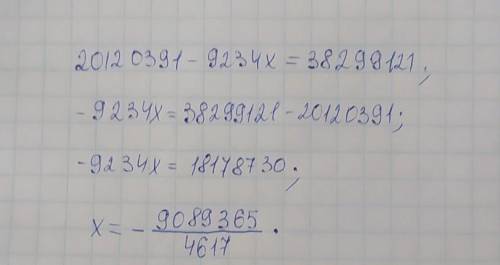 20120391 - 9234x = 38299121;
-9234x = 38299121 - 20120391;
-9234x = 18178730;
x = - 9089365/4617.